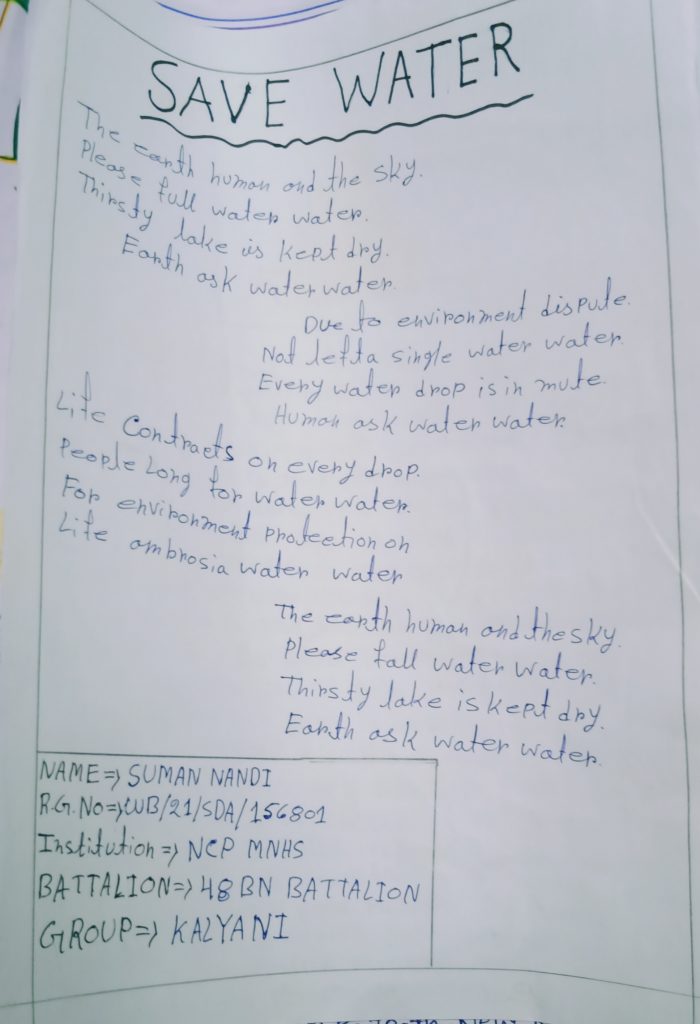 SAVE WATER
The earth human and the sky.
Please fall water water.
Thirsty lake is kept dry.
Earth ask water water.
Due to environment dispute.
Not left a single water water.
Every water drop is in mute.
Human ask water water.
Life Contracts on every drop.
People Long for water water.
For environment protection on
Life ambrosia water water
The earth human and the sky.
Please fall water water.
Thirsty lake is kept dry.
Earth ask water water.
NAME=> SUMAN NANDI
R.G.No=>WB/21/SDA/156801
Institution => NCP MNHS
BATTALION=> 48 BN BATTALION
GROUP=> KALYANI